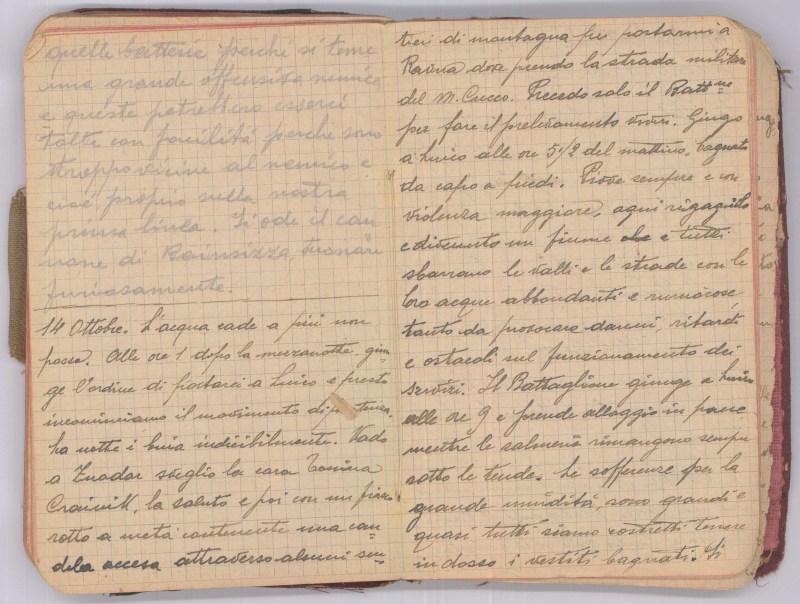 quelle batterie perché si teme
una grande offensiva nemica
e queste potrebbero esserci
tolte con facilità perché sono
troppo vicine al nemico e
cioè proprio sulla nostra
prima linea. Si ode il can-
none di Bainsizza, tuonare
furiosamente.
14 Ottobre. L'acqua cade a più non
posso. Alle ore 1 dopo la mezzanotte, giun-
ge l'ordine di portarci a Luico e presto
incominciamo il movimento di partenza,
ha notte i buia indicibilmente. Vado
a sveglio la cara Tonina
la saluto e poi con un fiasco
rotto a metà contenente una can-
dela accesa attraverso alcuni sen-
tieri di montagna per portarmi a
Ravna dove prendo la strada militare
del M. Cucco. Precedo solo il Battne
per fare il prelevamento viveri. Giungo
a Luico alle ore 5 1/2 del mattino, bagnato
da capo a piedi. Piove sempre e con
violenza maggiore, ogni rigagnolo
è divenuto un fiume che e tutti
sbarrano le valli e le strade con le
loro acque abbondanti e rumorose
tanto da provocare danni, ritardi
e ostacoli sul funzionamento dei
servizi. Il Battaglione giunge a Luico
alle ore 9 e prende alloggio in paese
mentre le salmerie rimangono sempre
sotto le tende. Le sofferenze per la
grande umidità, sono grandi e
quasi tutti siamo costretti tenere
in dosso i vestiti bagnati. Si